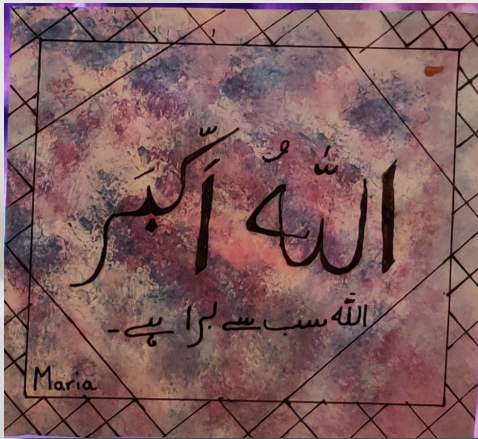 اللّٰهُ أَكْبَر
اللّٰه سب سے بڑا ہے۔
Maria